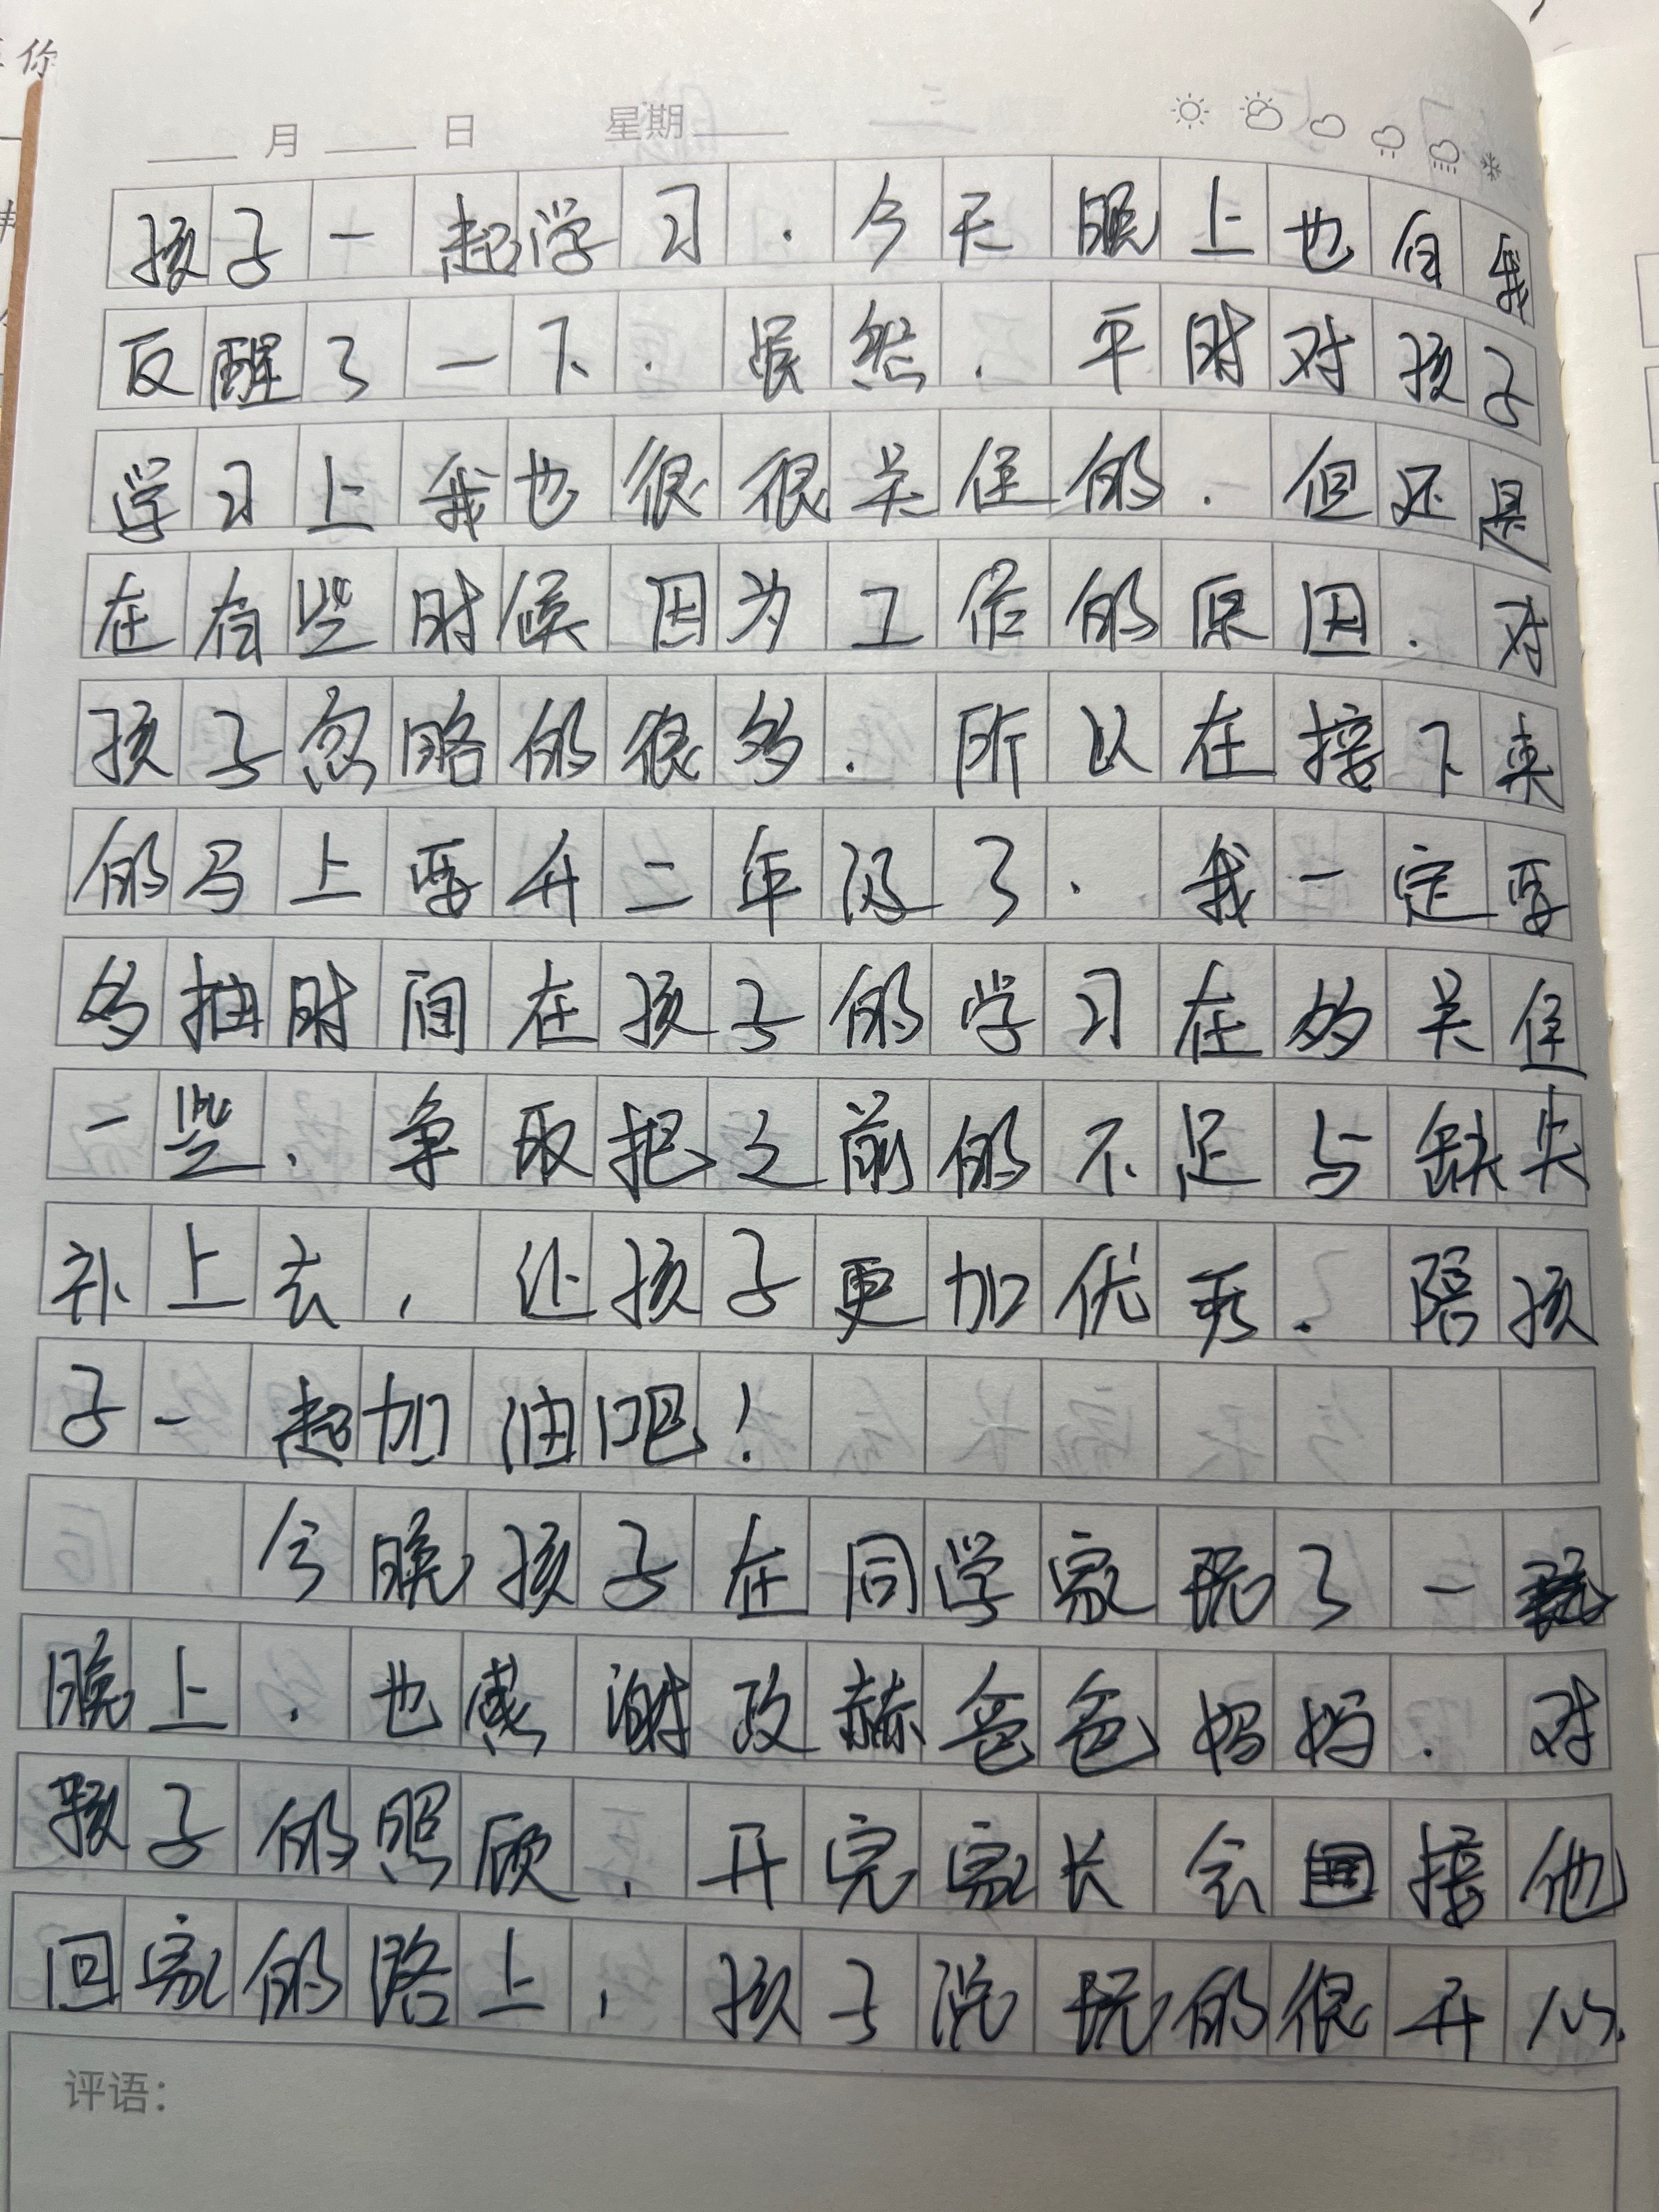 你
月 日 星期
孩子一起学习.今天晚上也自我
反醒了一下.虽然.平时对孩子
学习上我也很很关住的.但还是
在有些时候因为工作的原因.对
孩子忽略的很多.所以在接下来
的马上要升二年级了.我一定要
多抽时间在孩子的学习在多关住
一些.争取把之前的不足与缺失
补上去,让孩子更加优秀.陪孩
子一起加油吧!
今晚孩子在同学家玩了一
晚上.也感谢政赫爸爸妈妈.对
孩子的照顾,开完家长会接他
回家的路上,孩子说玩的很开心.
评语: